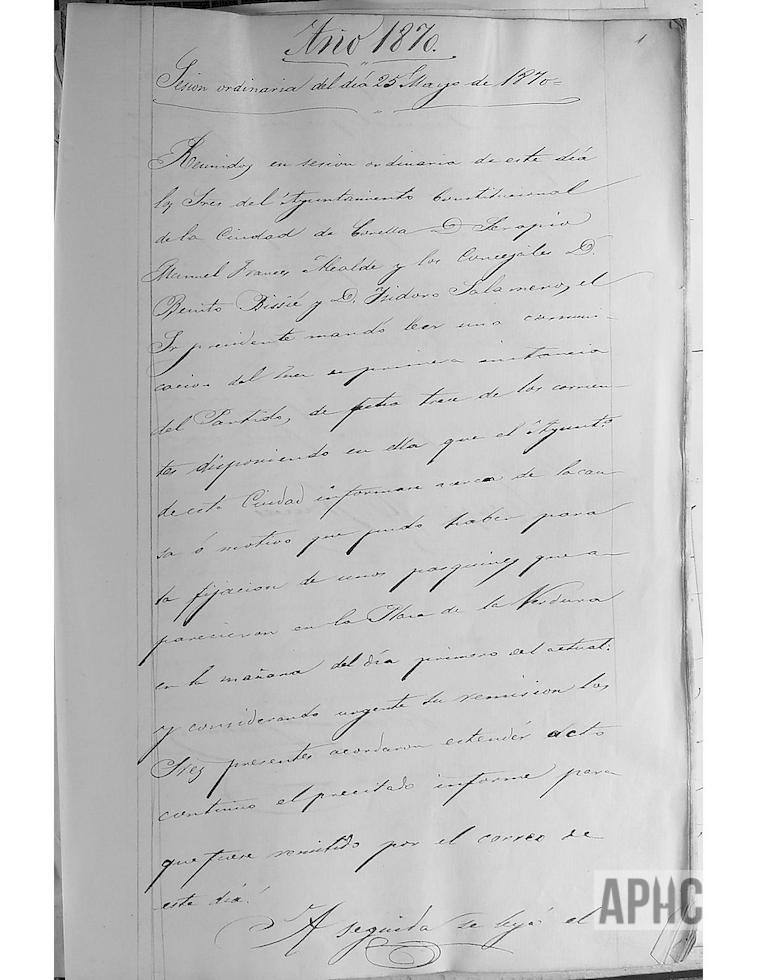 Año 1870.
1
Sesion ordinaria del día 25 Mayo de 1870=
Reunidos en sesion ordinaria de este día
los Sres del Ayuntamiento Constitucional
de la Ciudad de Corella D. Serapio
Manuel Frances Alcalde y los Concejales D.
Benito Bissié y D. Isidoro Salameno, el
Sr presidente mandó leer una comuni-
cacion del Juez en primera instancia
del Partido, de fecha trece de los corrien-
tes disponiendo en ella que el Ayunto
de esta Ciudad informase acerca de la cau-
sa ó motivo que pudo haber para
la fijacion de unos pasquines que a-
parecieron en la Plaza de la Verdura
en la mañana del día primero del actual:
y considerando urgente su remision los
Sres presentes acordaron estender acto
continuo el precitado informe para
que fuese remitido por el correo de
este día.
A seguida se leyó el
APHC